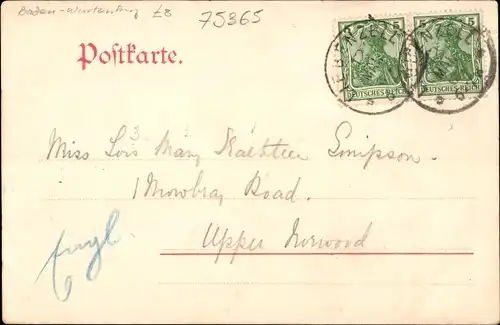 Baden-Württemberg £8
75365
Postkarte.
5 5
DEUTSCHES REICH
Miss Lois Mary Simpson.
1 Mowbray Road.
Upper Norwood
Engl.